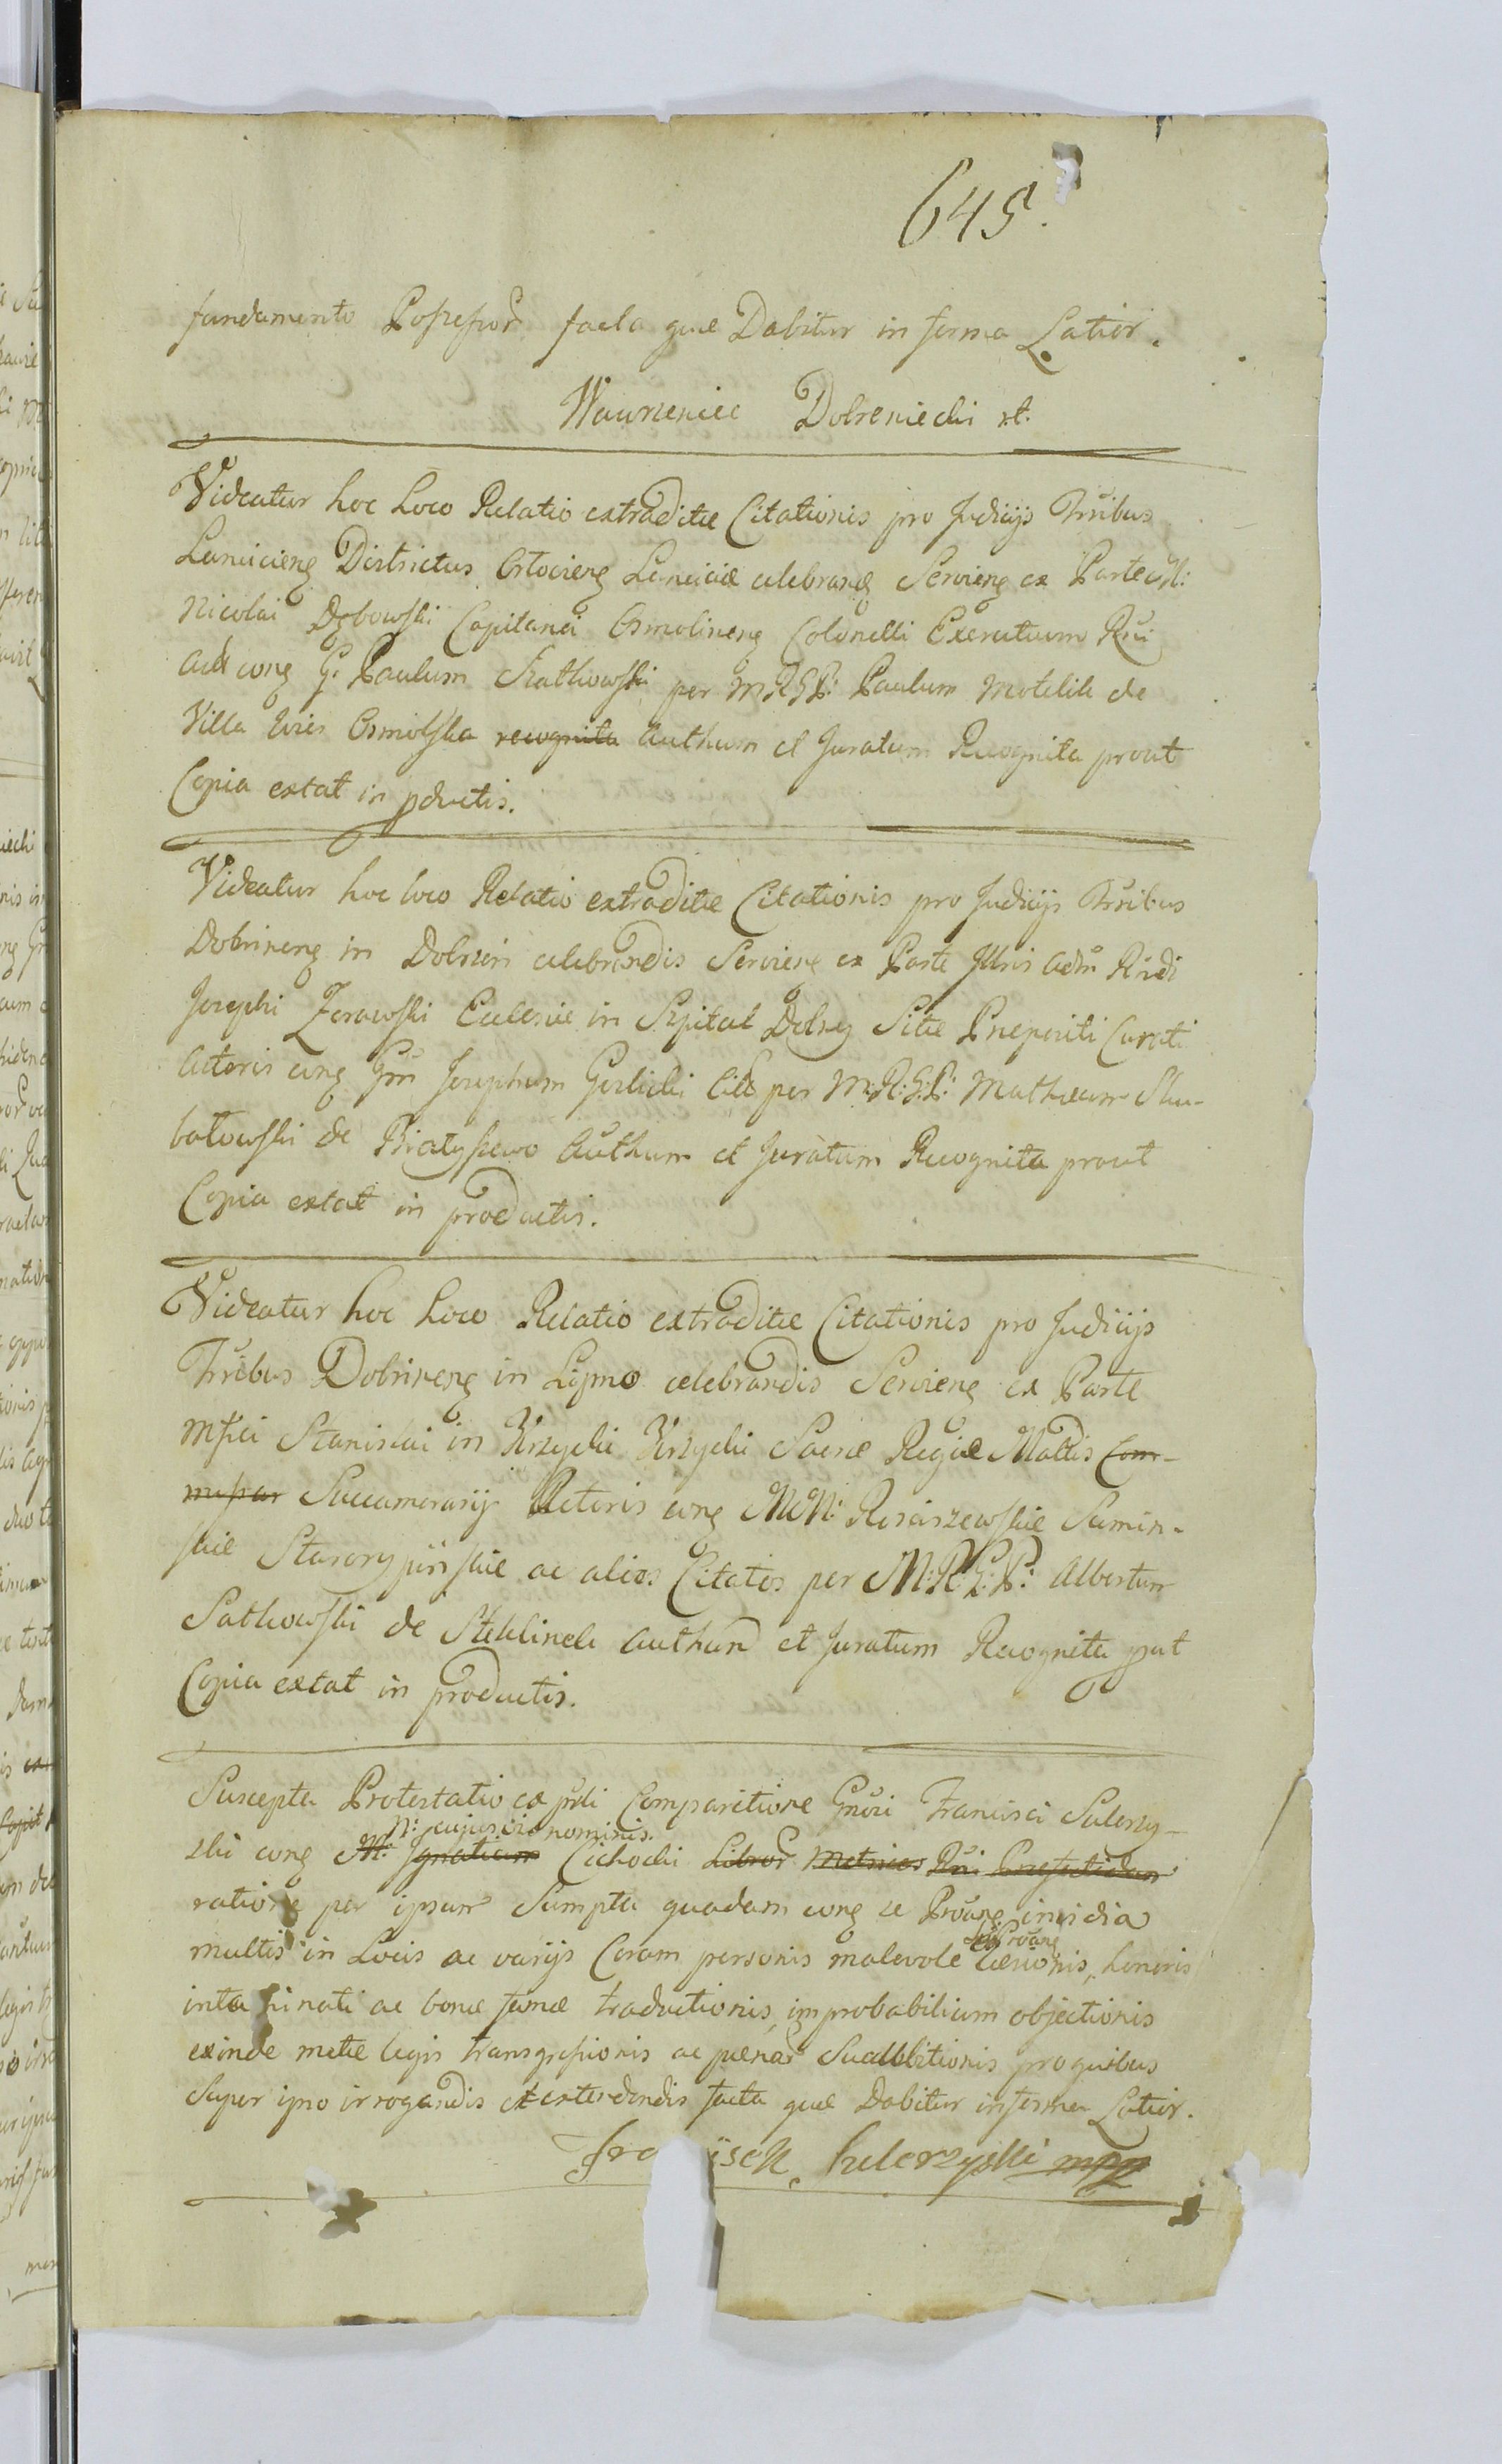 645.
fundamento Possessor facta quæ Dabitur in forma Latior.
Wawrzeniec Dobreniecki
Videatur hoc Loco Relatio extraditæ Citationis pro Judicijs Trribus
Lanciciens Districtus Orloviens Lanciciæ celebrand Serviens ex Parte M:
Nicolai Dębowski Capitanei Osmolinens Colonelli Exercituum Rni
Actō cong G. Paulum Szatkowski per MRGP: Paulum Motelik de
Villa Wies Osmolska recognita Authum et Juratum Recognita prout
Copia extat in pductis.
Videatur hoc loco Relatio extraditæ Citationis pro Judicijs Trribus
Dobrinens in Dobrzin celebrandis Serviens ex Parte Jllris adm Rndi
Josephi Zorawski Ecclesiæ in Szpital Dolny Sitæ Præpositi Curati
Actoris cong Gm Josephum Gorlicki Citt per M:R:G:P: Mathæum Sku-
batowski de Authum et Juratum Recognita prout
Copia extat in productis.
Videatur hoc Loco Relatio extraditæ Citationis pro Judicijs
Trribus Dobrinens in Lipno celebrandis Serviens ex Parte
Mfici Stanislai in Krzycki Krzycki Sacræ Regiæ Mattis Com-
missar Succamerarij Actoris cong MM: Rosciszewskie Sumin-
skie Starorypinskie ac alios Citatos per M:R:G:P: Albertum
Satkowski de Steklinek Authum et Juratum Recognita put
Copia extat in productis.
Suscepta Protestatio ex psti Comparitione Gnosi Francisci Sulerzy-
N: cujusvis nominis.
ski cong M: Ignatium Cichocki Libror Metrices Rni Præfectidam
ratione per ipsum Sumpta quadam cong se Protang invidia
multis in Locis ac varijs Coram personis malevole læsionis, honoris
intaminati ac bonæ famæ traductionis, improbabilium objectionis
exinde metæ legis transgressionis ac pænar Succubitionis pro quibus
Super ipso irrogandis et extendendis facta quæ Dabitur in forma Latior.
Fra iszek Sulerzyski mpp